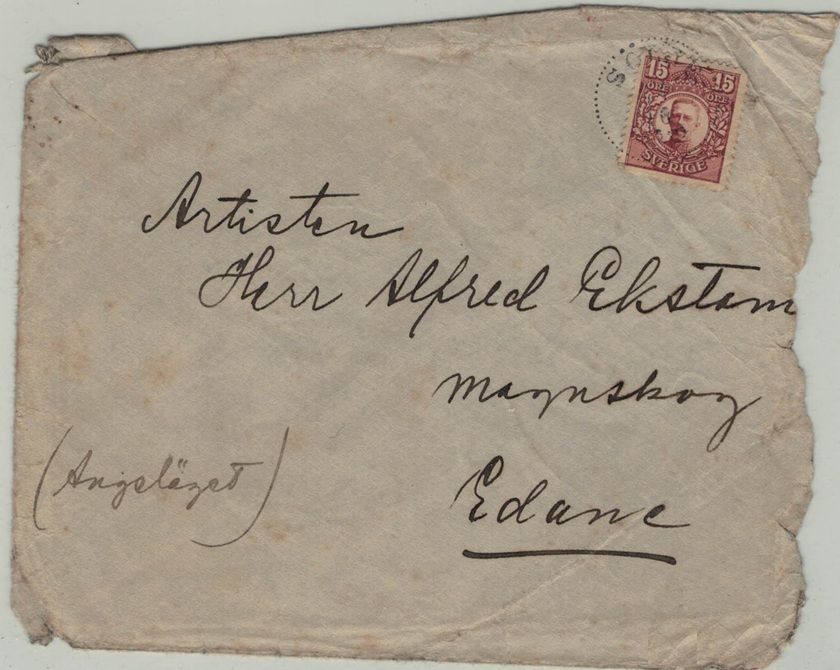 15 15
ÖRE ÖRE
SVERIGE
Artisten
Herr Alfred Ekstam
Magnskog
Edane
(Angeläget)